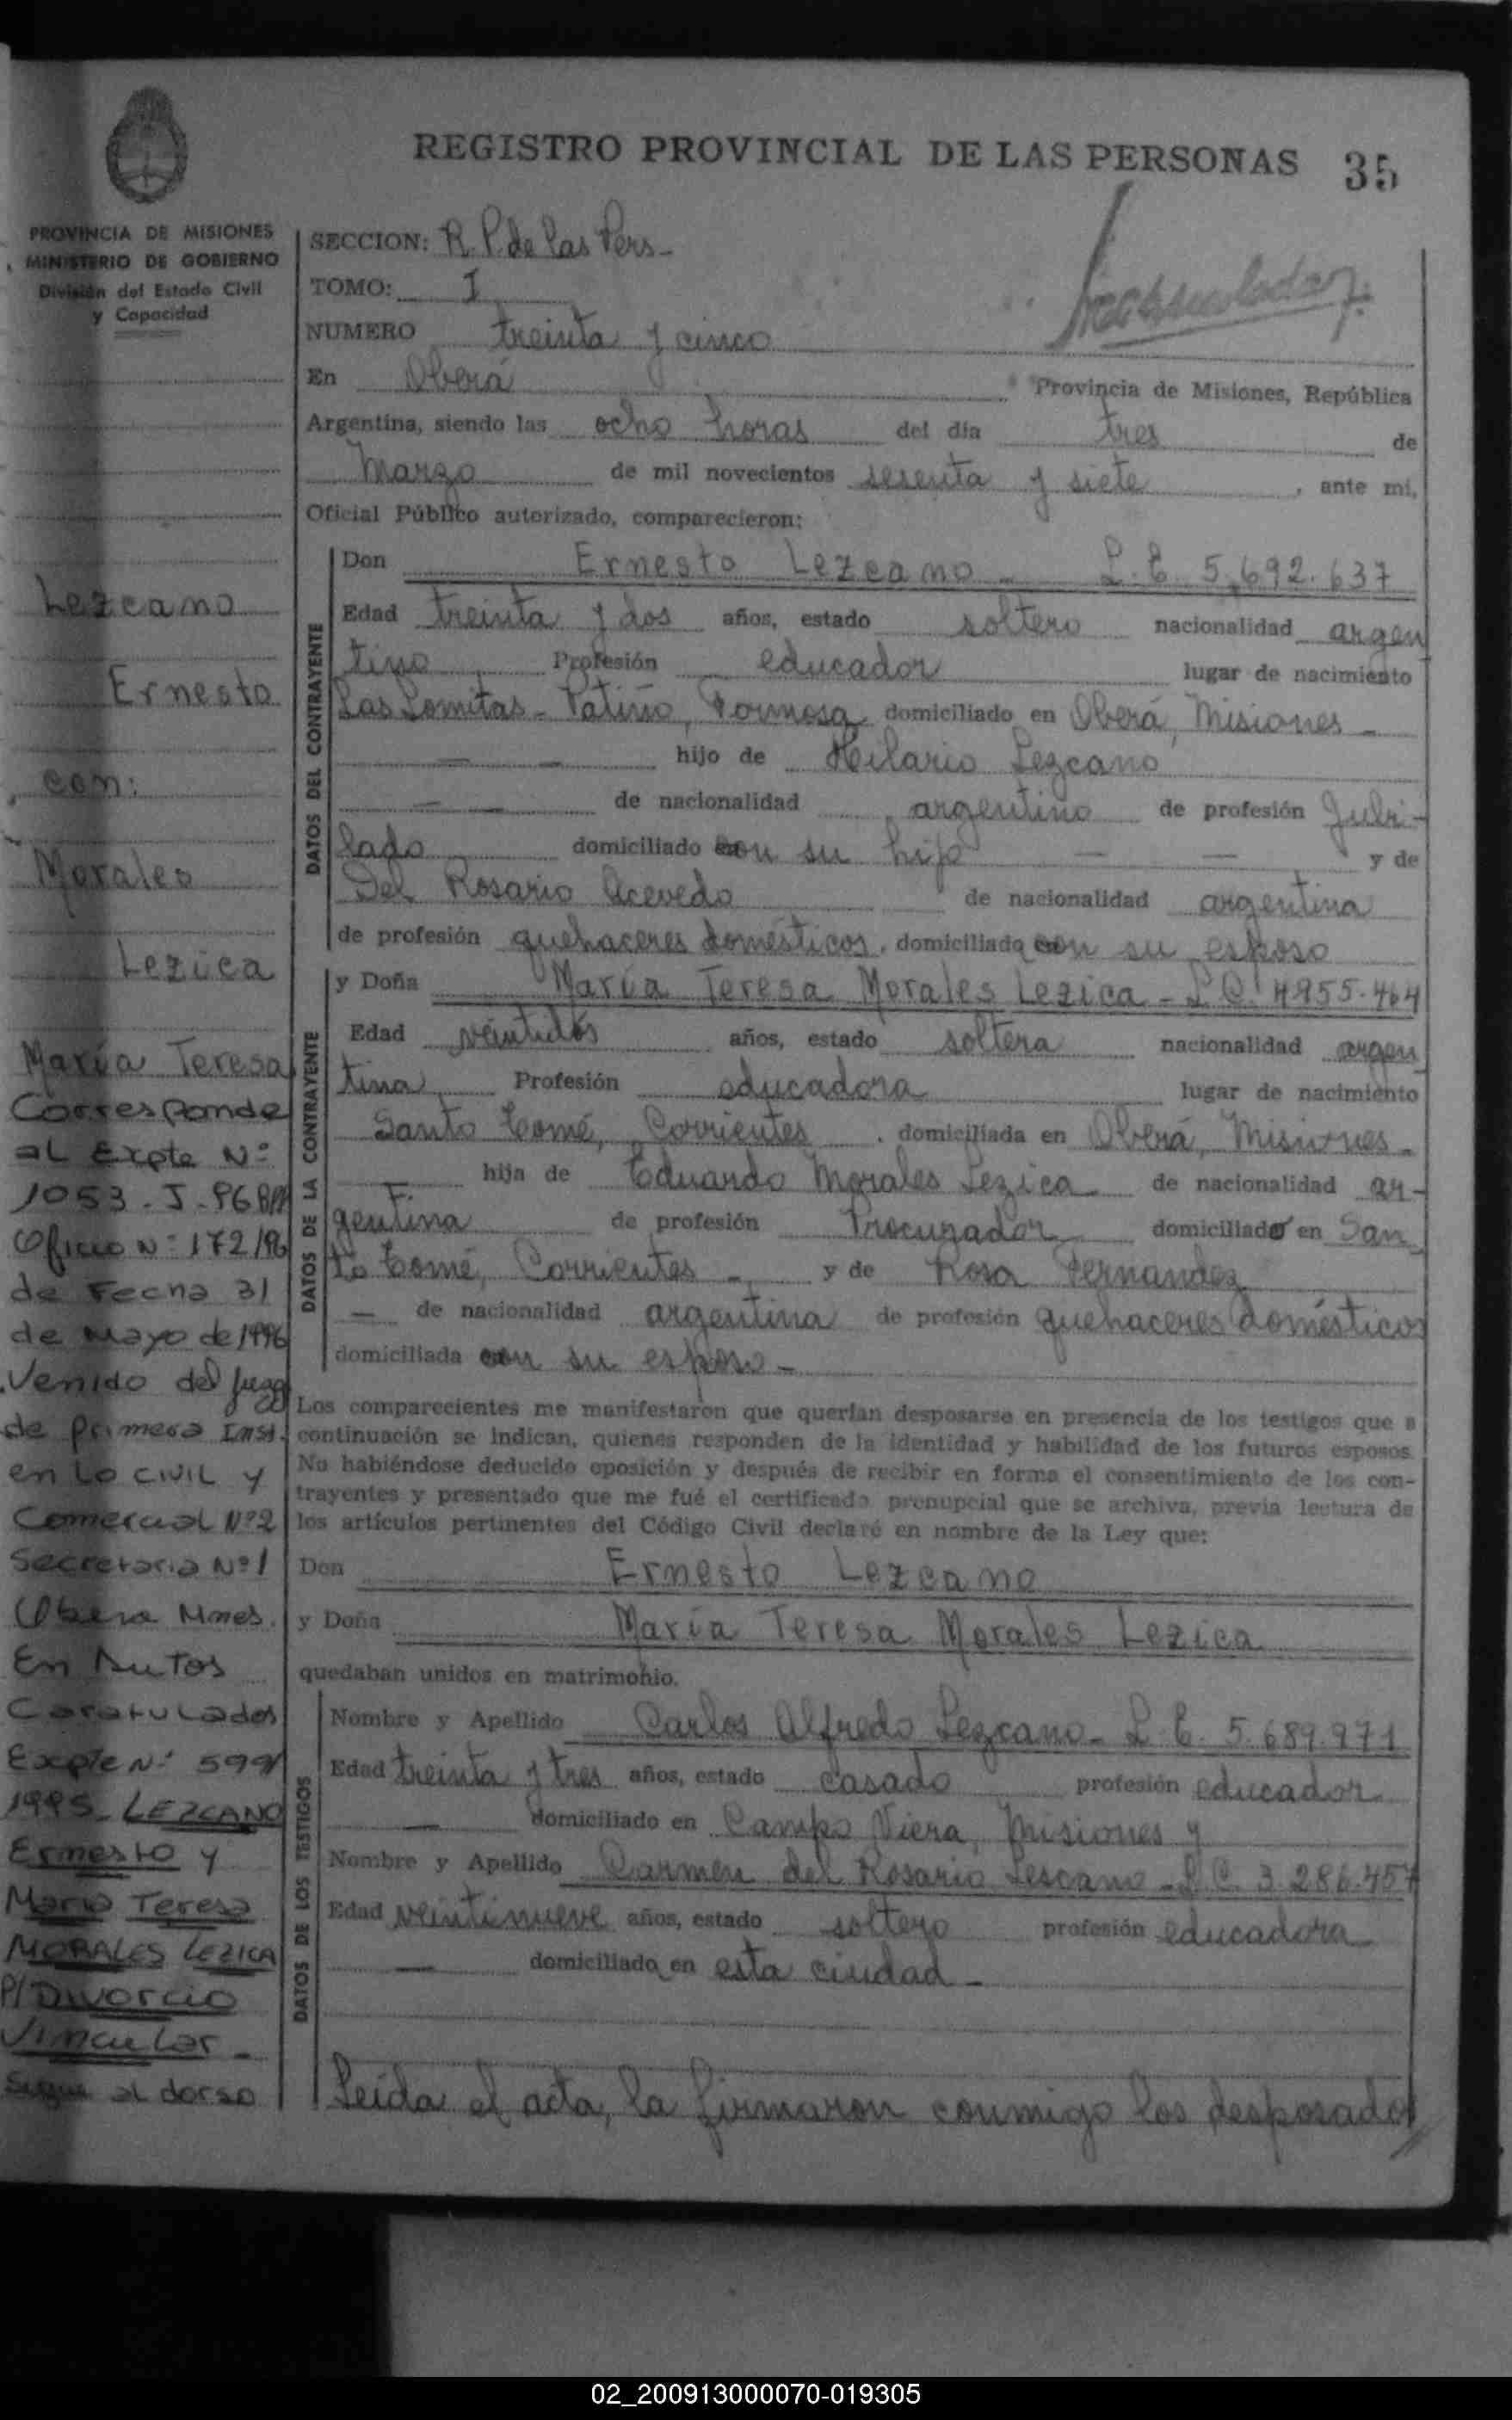 REGISTRO PROVINCIAL DE LAS PERSONAS 35
PROVINCIA DE MISIONES
MINISTERIO DE GOBIERNO
División del Estado Civil
y Capacidad
SECCION: R. P. de las Pers-
TOMO: I
NUMERO treinta y cinco
En Oberá Provincia de Misiones, República
Argentina, siendo las ocho horas del día tres de
Marzo de mil novecientos sesenta y siete, ante mí,
Oficial Público autorizado, comparecieron:
DATOS DEL CONTRAYENTE
Don Ernesto Lezcano - L. E. 5.692.637
Edad treinta y dos años, estado soltero nacionalidad argen
tino Profesión educador lugar de nacimiento
Las Lomitas - Patiño, Formosa domiciliado en Oberá, Misiones -
— — hijo de Hilario Lezcano
— — de nacionalidad argentino de profesión Jubi-
lado domiciliado con su hijo — — y de
Del Rosario Acevedo de nacionalidad argentina
de profesión quehaceres domésticos, domiciliada con su esposo
DATOS DE LA CONTRAYENTE
y Doña María Teresa Morales Lezica - L. C. 4955.464
Edad veintidós años, estado soltera nacionalidad argen
tina Profesión educadora lugar de nacimiento
Santo Tomé, Corrientes, domiciliada en Oberá, Misiones -
hija de Eduardo Morales Lezica de nacionalidad ar-
F.
gentina de profesión Procurador domiciliado en San
to Tomé, Corrientes - y de Rosa Fernandez
— de nacionalidad argentina de profesión quehaceres domésticos
domiciliada con su esposo -
Los comparecientes me manifestaron que querían desposarse en presencia de los testigos que a
continuación se indican, quienes responden de la identidad y habilidad de los futuros esposos.
No habiéndose deducido oposición y después de recibir en forma el consentimiento de los con-
trayentes y presentado que me fué el certificado prenupcial que se archiva, previa lectura de
los artículos pertinentes del Código Civil declaré en nombre de la Ley que:
Don Ernesto Lezcano
y Doña María Teresa Morales Lezica
quedaban unidos en matrimonio.
DATOS DE LOS TESTIGOS
Nombre y Apellido Carlos Alfredo Lezcano - L. E. 5.689.971
Edad treinta y tres años, estado casado profesión educador
— domiciliado en Campo Viera, Misiones y
Nombre y Apellido Carmen del Rosario Lescano - L. C. 3.286.457
Edad veintinueve años, estado soltero profesión educadora
— domiciliada en esta ciudad -
Leída el acta, la firmaron conmigo los desposados
Lezcano
Ernesto
con:
Morales
Lezica
María Teresa
Corresponde
al Expte Nº
1053 - J - 96
Oficio Nº 172/96
de Fecha 31
de Mayo de 1996
Venido del Juzg
de Primera Inst.
en Lo Civil y
Comercial Nº 2
Secretaria Nº 1
Obera Mnes.
En Autos
Caratulados
Expte Nº 599/
1995 - LEZCANO
Ernesto y
Maria Teresa
MORALES LEZICA
P/Divorcio
Vincular -
Sigue al dorso
02_200913000070-019305